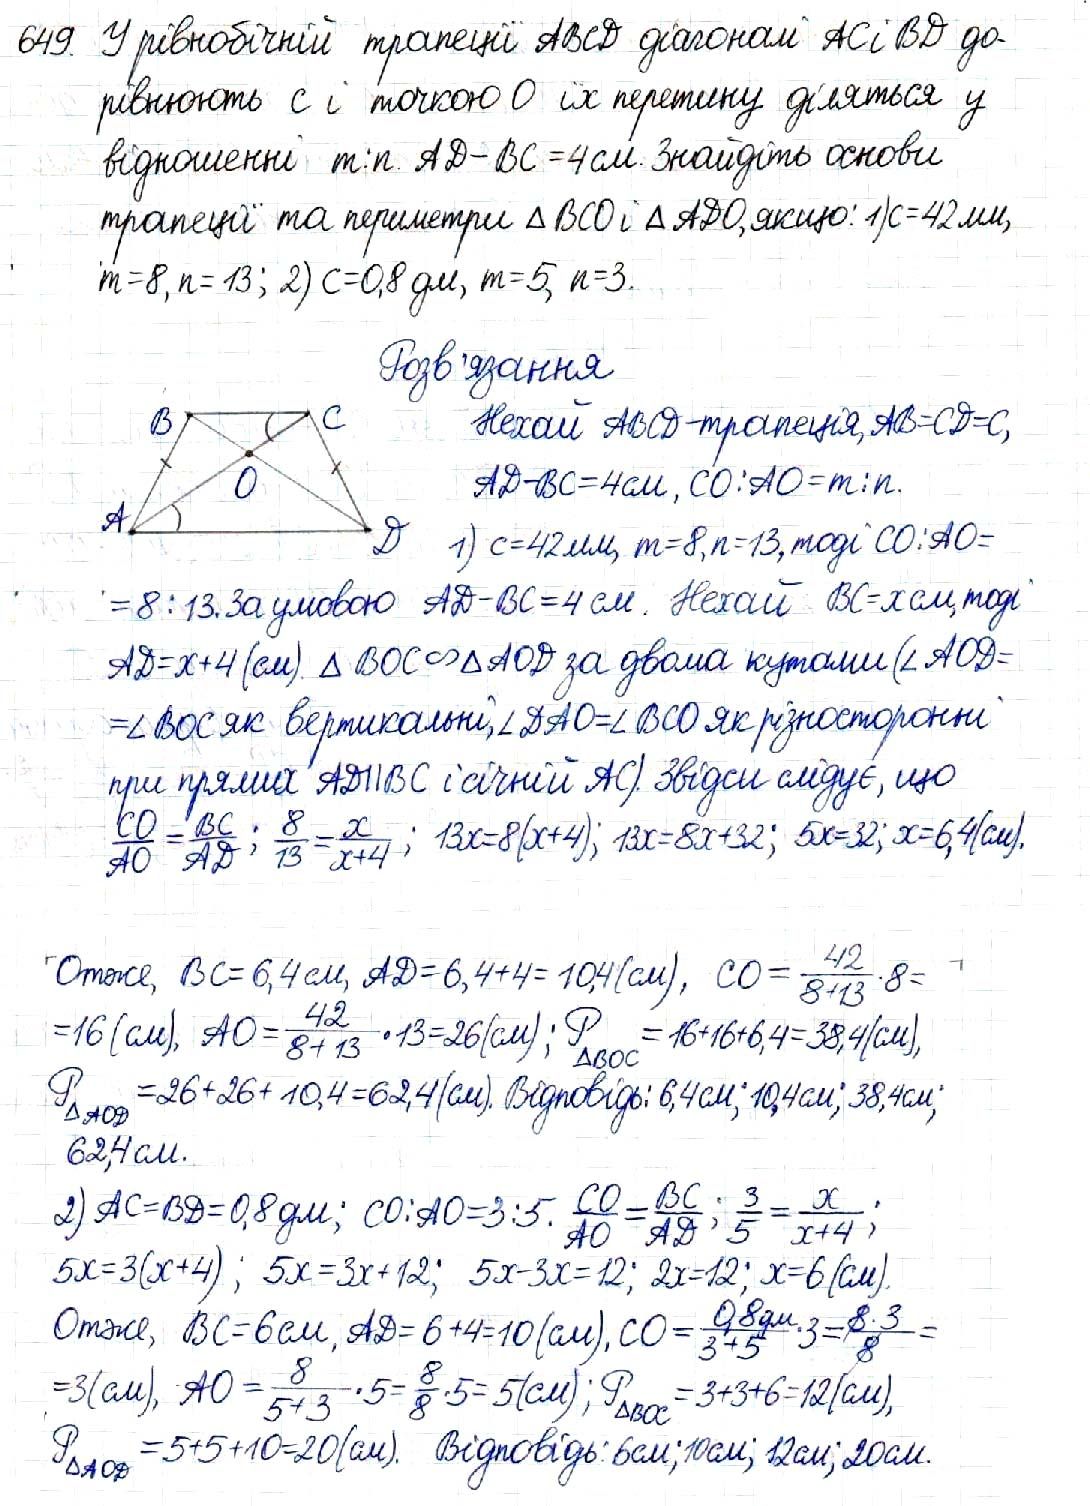 649. У рівнобічній трапеції ABCD діагоналі AC і BD до-
рівнюють c і точкою O їх перетину діляться у
відношенні m:n. AD-BC=4см. Знайдіть основи
трапеції та периметри △BCO і △ADO, якщо: 1) c=42мм,
m=8, n=13; 2) c=0,8 дм, m=5, n=3.
Розв'язання
B C
O
A D
Нехай ABCD-трапеція, AB=CD=C,
AD-BC=4см, CO:AO=m:n.
1) c=42мм, m=8, n=13, тоді CO:AO=
=8:13. За умовою AD-BC=4см. Нехай BC=x см, тоді
AD=x+4(см). △BOC∽△AOD за двома кутами (∠AOD=
=∠BOC як вертикальні, ∠DAO=∠BCO як різносторонні
при прямих AD||BC і січній AC). Звідси слідує, що
CO/AO=BC/AD; 8/13=x/(x+4); 13x=8(x+4); 13x=8x+32; 5x=32; x=6,4(см).
Отже, BC=6,4см, AD=6,4+4=10,4(см), CO=42/(8+13)·8=
=16(см), AO=42/(8+13)·13=26(см); P△BOC=16+16+6,4=38,4(см),
P△AOD=26+26+10,4=62,4(см). Відповідь: 6,4см; 10,4см; 38,4см;
62,4см.
2) AC=BD=0,8дм; CO:AO=3:5. CO/AO=BC/AD; 3/5=x/(x+4);
5x=3(x+4); 5x=3x+12; 5x-3x=12; 2x=12; x=6(см).
Отже, BC=6см, AD=6+4=10(см), CO=0,8дм/(3+5)·3=8·3/8=
=3(см), AO=8/(5+3)·5=8/8·5=5(см); P△BOC=3+3+6=12(см),
P△AOD=5+5+10=20(см). Відповідь: 6см; 10см; 12см; 20см.